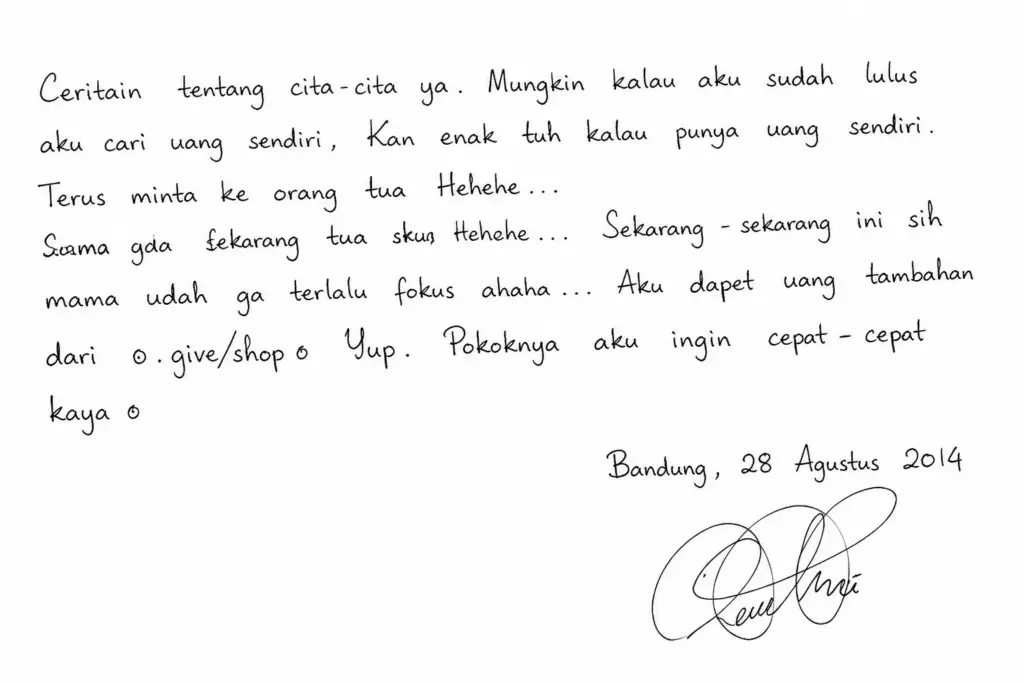 Ceritain tentang cita-cita ya. Mungkin kalau aku sudah lulus
aku cari uang sendiri, Kan enak tuh kalau punya uang sendiri.
Terus minta ke orang tua Hehehe...
gda tua Hehehe... Sekarang-sekarang ini sih
mama udah ga terlalu fokus ahaha... Aku dapet uang tambahan
dari o.give/shop o Yup. Pokoknya aku ingin cepat-cepat
kaya o
Bandung, 28 Agustus 2014